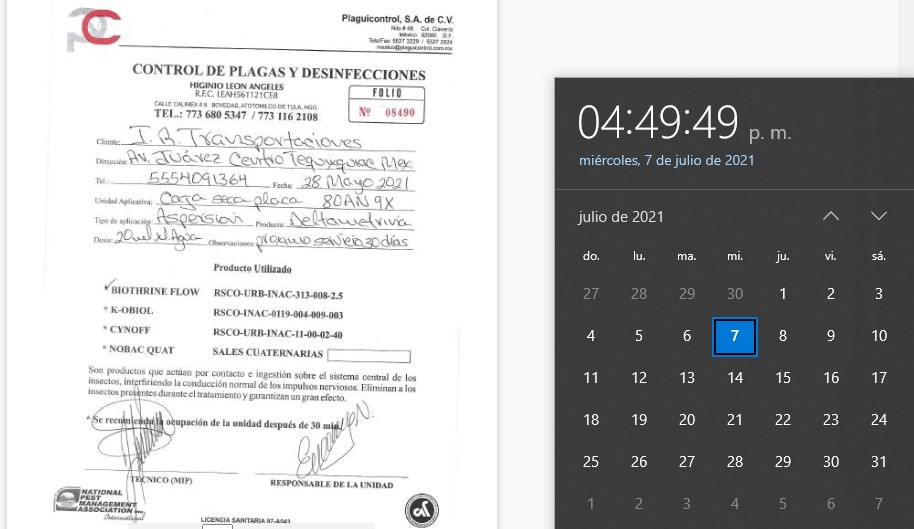 PC
Plaguicontrol, S.A. de C.V.
Nilo # 46 Col. Clavería
México 02080 D.F.
Tels/Fax: 5527 3229 / 5527 2624
mexico@plaguicontrol.com.mx
CONTROL DE PLAGAS Y DESINFECCIONES
HIGINIO LEON ANGELES
R.F.C. LEAH561121CE8
CALLE CALIMEX # 8 BOVEDAS, ATOTONILCO DE TULA, HGO.
TEL.: 773 680 5347 / 773 116 2108
FOLIO
Nº 08490
Cliente: I. R. Transportaciones
Dirección: Av. Juárez Centro Tequixquiac Mex.
Tel.: 5554091364 Fecha: 28 Mayo 2021
Unidad Aplicativa: Caja seca placa 80AN9X
Tipo de aplicación: Aspersion Producto: Deltametrina
Dosis: 20ml xl Agua Observaciones: proximo servicio 30 días
Producto Utilizado
BIOTHRINE FLOW RSCO-URB-INAC-313-008-2.5
* K-OBIOL RSCO-INAC-0119-004-009-003
* CYNOFF RSCO-URB-INAC-11-00-02-40
* NOBAC QUAT SALES CUATERNARIAS
Son productos que actúan por contacto e ingestión sobre el sistema central de los
insectos, interfiriendo la conducción normal de los impulsos nerviosos. Eliminan a los
insectos presentes durante el tratamiento y garantizan un gran efecto.
* Se recomienda la ocupación de la unidad después de 30 min.
TECNICO (MIP) RESPONSABLE DE LA UNIDAD
NATIONAL
PEST
MANAGEMENT
ASSOCIATION
International
LICENCIA SANITARIA 97-A043
04:49:49 p. m.
miércoles, 7 de julio de 2021
julio de 2021
do. lu. ma. mi. ju. vi. sá.
27 28 29 30 1 2 3
4 5 6 7 8 9 10
11 12 13 14 15 16 17
18 19 20 21 22 23 24
25 26 27 28 29 30 31
1 2 3 4 5 6 7